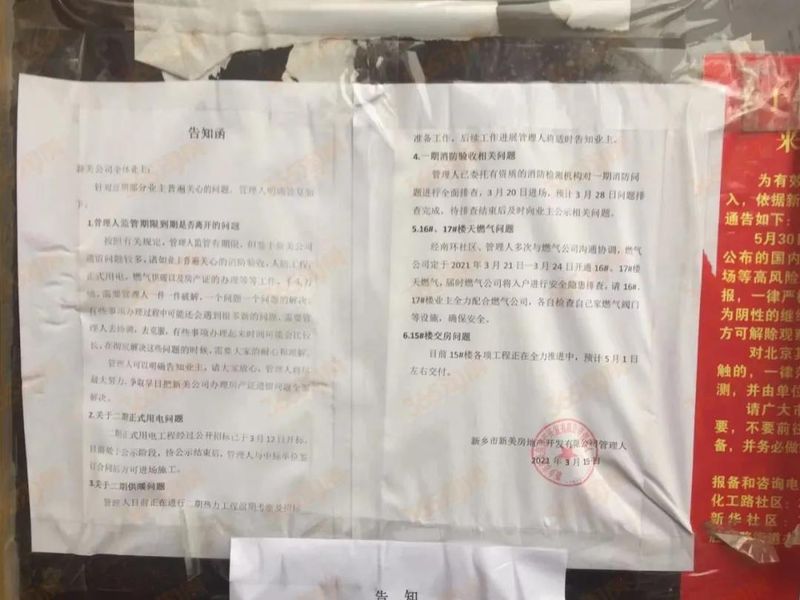 告知函
新美公司全体业主：
针对近期部分业主普遍关心的问题，管理人明确答复如
下：
1.管理人监管期限到期是否离开的问题
按照有关规定，管理人监管有期限，但鉴于新美公司
遗留问题较多，诸如业主普遍关心的消防验收，人防工程，
正式用电，燃气供暖以及房产证的办理等等工作，千头万
绪，需要管理人一件一件破解，一个问题一个问题的解决。
有些事项办理过程中可能还会遇到很多新的问题，需要管
理人去协调，去克服，有些事项办理起来时间可能会比较
长，在彻底解决这些问题的时候，需要大家的耐心和理解。
管理人可以明确告知业主，请大家放心，管理人将尽
最大努力，争取早日把新美公司办理房产证遗留问题全部
解决。
2.关于二期正式用电问题
二期正式用电工程经过公开招标已于3月12日开标，
目前处于公示阶段，待公示结束后，管理人与中标单位签
订合同后方可进场施工。
3.关于二期供暖问题
管理人目前正在进行二期热力工程前期考察及招标
准备工作，后续工作进展管理人将适时告知业主。
4.一期消防验收相关问题
管理人已委托有资质的消防检测机构对一期消防问
题进行全面排查，3月20日进场，预计3月28日问题排
查完成，待排查结束后及时向业主公示相关问题。
5.16#、17#楼天燃气问题
经南环社区、管理人多次与燃气公司沟通协调，燃气
公司定于2021年3月21日—3月24日开通16#、17#楼
天燃气，届时燃气公司将入户进行安全隐患排查，请16#、
17#楼业主全力配合燃气公司，各自检查自己家燃气阀门
等设施，确保安全。
6.15#楼交房问题
目前15#楼各项工程正在全力推进中，预计5月1日
左右交付。
新乡市新美房地产开发有限公司管理人
2021年3月15日
告 知
来
为有效
入，依据新
通告如下：
5月30日
公布的国内
场等高风险
报，一律严
为阴性的继续
方可解除观察
对北京
触的，一律
测，并由单位
请广大市
要，不要前往
备，并务必做
报备和咨询电
化工路社区：
新华社区：